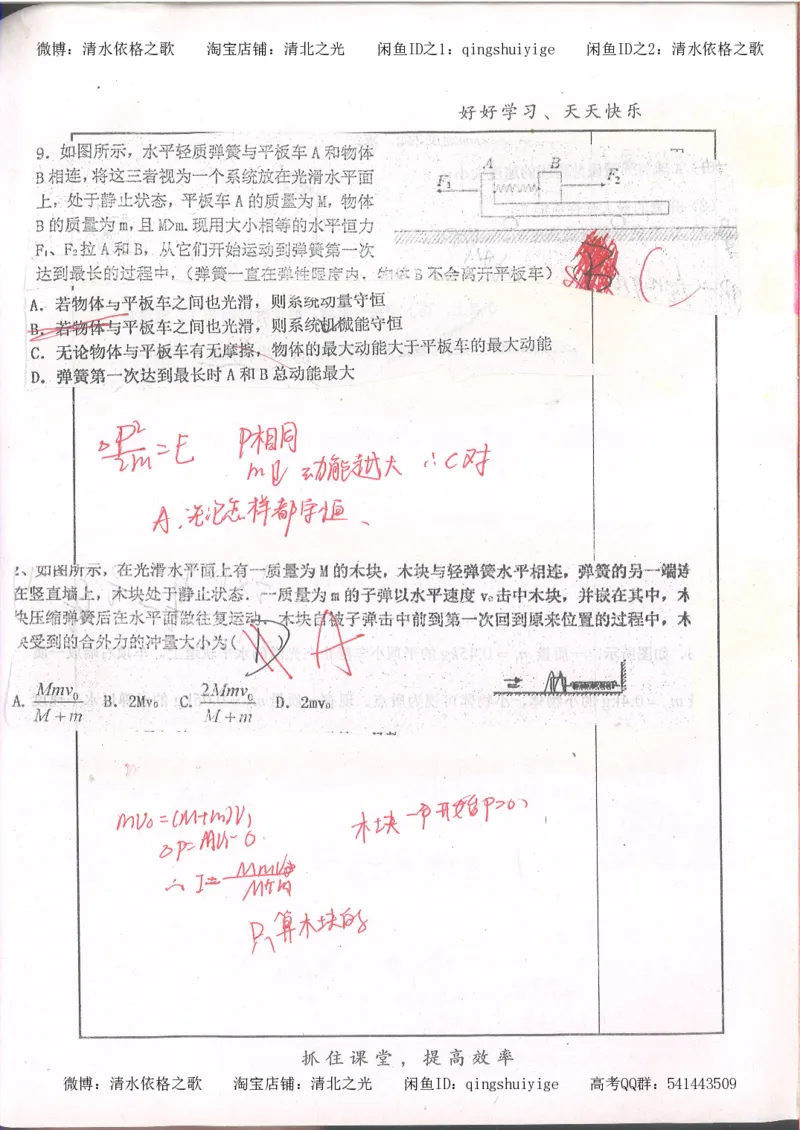 微博：清水依格之歌 淘宝店铺：清北之光 闲鱼ID之1：qingshuiyige 闲鱼ID之2：清水依格之歌
好好学习、天天快乐
9．如图所示，水平轻质弹簧与平板车 A 和物体
B 相连，将这三者视为一个系统放在光滑水平面
上，处于静止状态，平板车 A 的质量为 M，物体
B 的质量为 m，且 M>m．现用大小相等的水平恒力
F₁、F₂拉 A 和 B，从它们开始运动到弹簧第一次
达到最长的过程中，（弹簧一直在弹性限度内，物体 B 不会离开平板车）（ C
A B
F₁ F₂
A．若物体与平板车之间也光滑，则系统动量守恒
B．若物体与平板车之间也光滑，则系统机械能守恒
C．无论物体与平板车有无摩擦，物体的最大动能大于平板车的最大动能
D．弹簧第一次达到最长时 A 和 B 总动能最大
P²/2m = E P相同
m小 动能越大 ∴C对
A、无论怎样都守恒、
2、如图所示，在光滑水平面上有一质量为 M 的木块，木块与轻弹簧水平相连，弹簧的另一端连
在竖直墙上，木块处于静止状态．一质量为 m 的子弹以水平速度 v₀击中木块，并嵌在其中，木
块压缩弹簧后在水平面做往复运动．木块自被子弹击中前到第一次回到原来位置的过程中，木
块受到的合外力的冲量大小为( D ) A
A. Mmv₀/(M+m) B. 2Mv₀ C. 2Mmv₀/(M+m) D. 2mv₀
mv₀=(M+m)V₁
△P=MV₁-0
∴ I=Mmv₀/(M+m)
木块一开始P=0，
只算木块的
抓住课堂，提高效率
微博：清水依格之歌 淘宝店铺：清北之光 闲鱼ID：qingshuiyige 高考QQ群：541443509